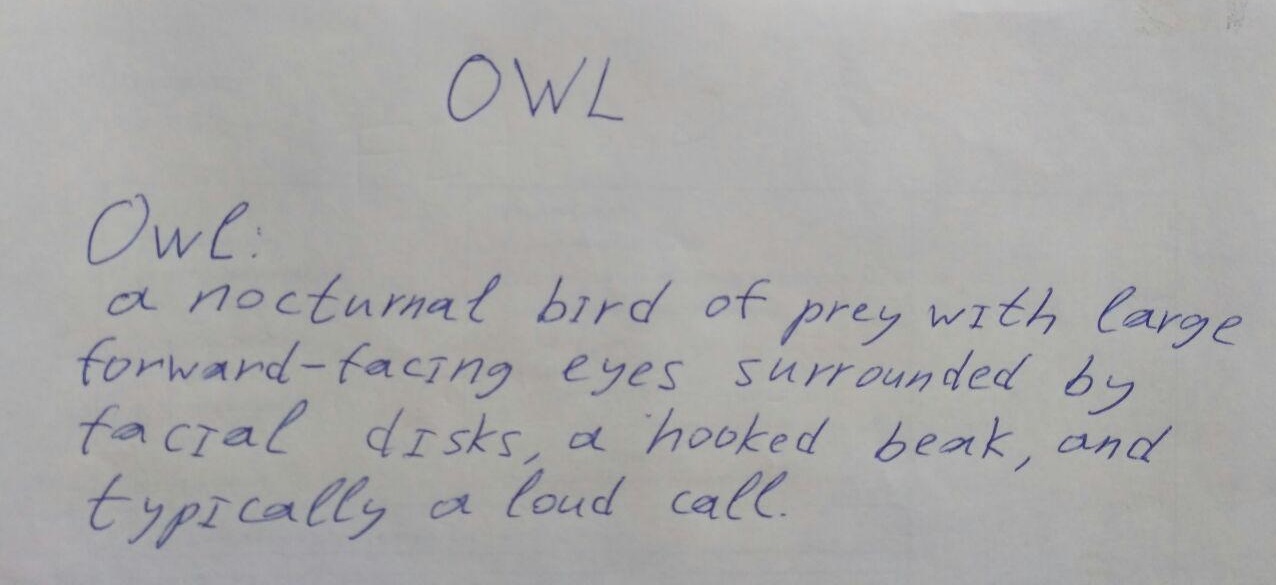 OWL
Owl:
a nocturnal bird of prey with large
forward-facing eyes surrounded by
facial disks, a hooked beak, and
typically a loud call.